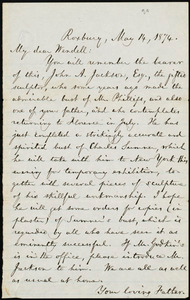 Roxbury, May 14, 1874.
My dear Wendell:
You will remember the bearer
of this, John A. Jackson, Esq., the
sculptor, who some years ago made the
admirable bust of Mr. Phillips, and also one
of your father, and who contemplates
returning to Florence in July. He has
just completed a strikingly accurate and
spirited bust of Charles Sumner, which
he will take with him to New York this
evening for temporary exhibition, to-
gether with several pieces of sculpture
of his skillful workmanship. I hope
he will get some orders for copies (in
plaster) of Sumner's bust, which is
regarded, by all who have seen it as
eminently successful. If Mr. Godkin
is in the office, please introduce Mr.
Jackson to him. We are all as well
as usual at home.
Your loving Father.